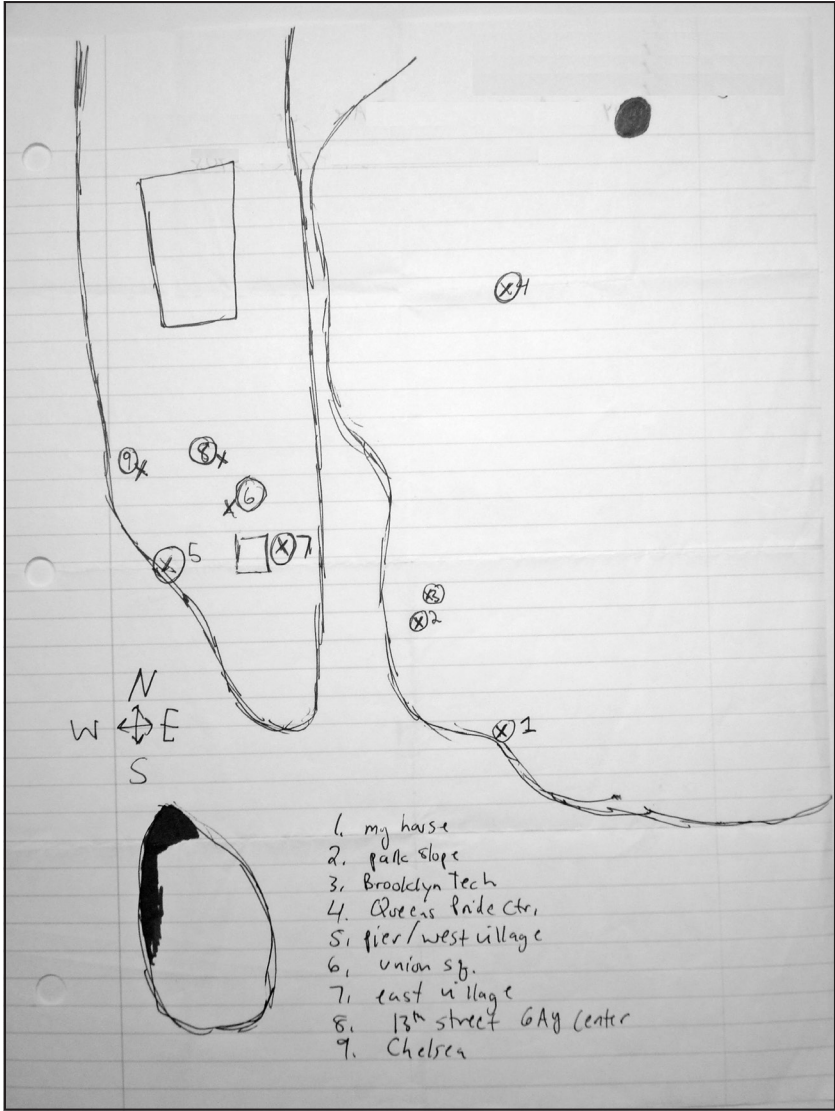 4
9
8
6
5
7
3
2
N
W E
S
1
1. my house
2. park slope
3. Brooklyn Tech
4. Queens Pride Ctr.
5. pier/west village
6. union sq.
7. east village
8. 13th street GAy Center
9. Chelsea